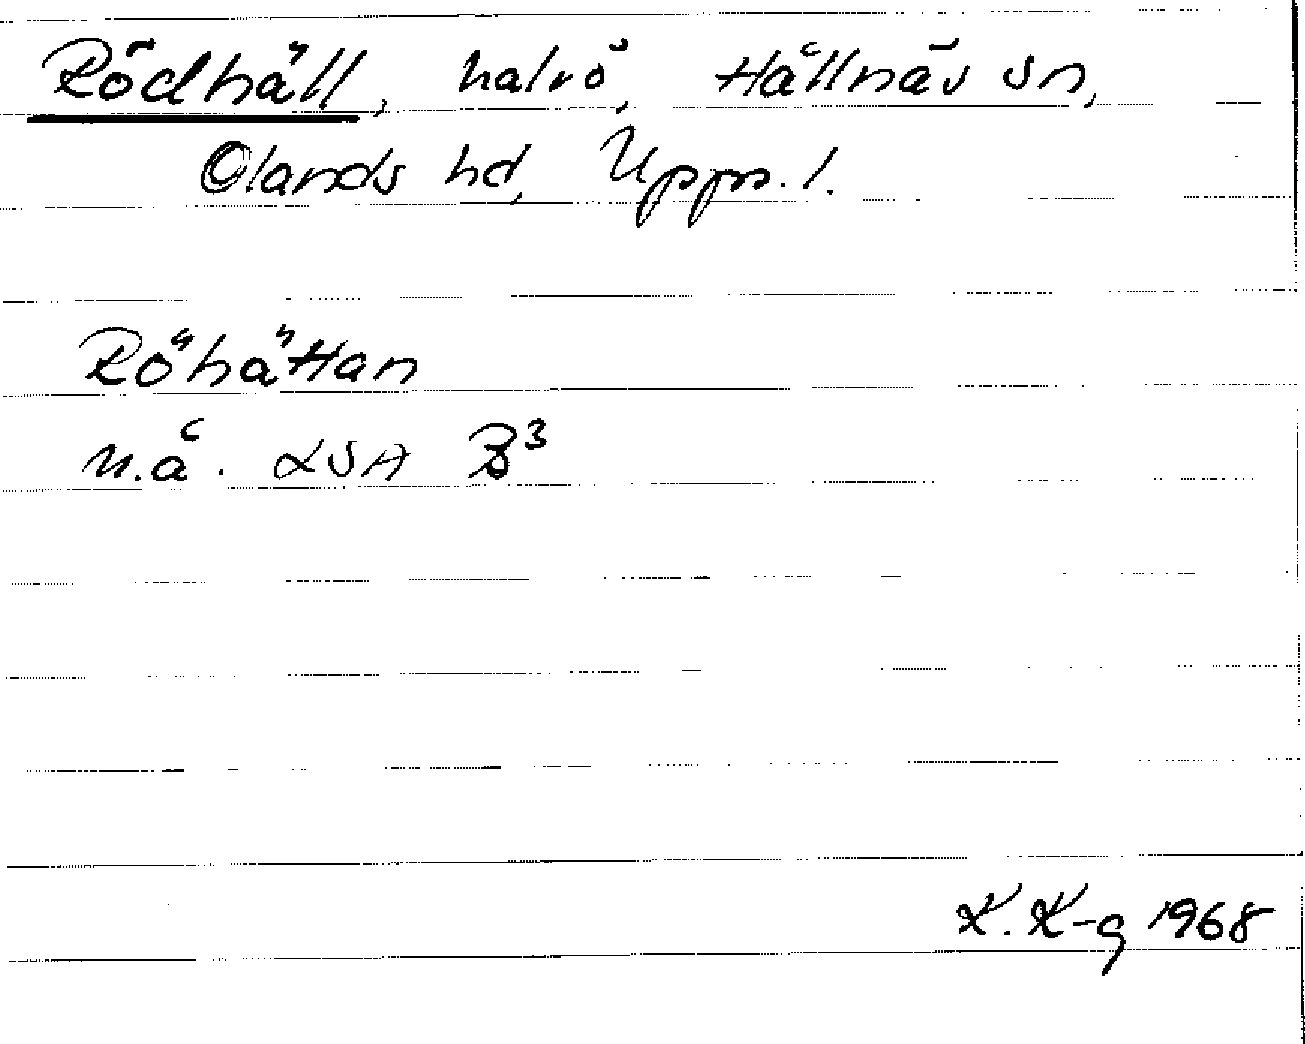 Rödhäll, halvö, Hållnäs sn,
Olands hd, Upps. l.
Röhättan
n.å. LSA B³
K. K-g 1968